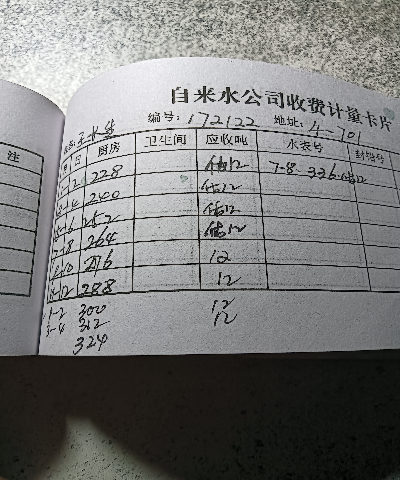 自来水公司收费计量卡片
编号: 172122 地址: 4-701
注 月 日 厨房 卫生间 应收吨 水表号 封铅号
1-2 228 估12 7-8
3-4 240 估12
5-6 252 估12
7-8 264 估12
9-10 276 12
11-12 288 12
1-2 300 12
3-4 312 12
324